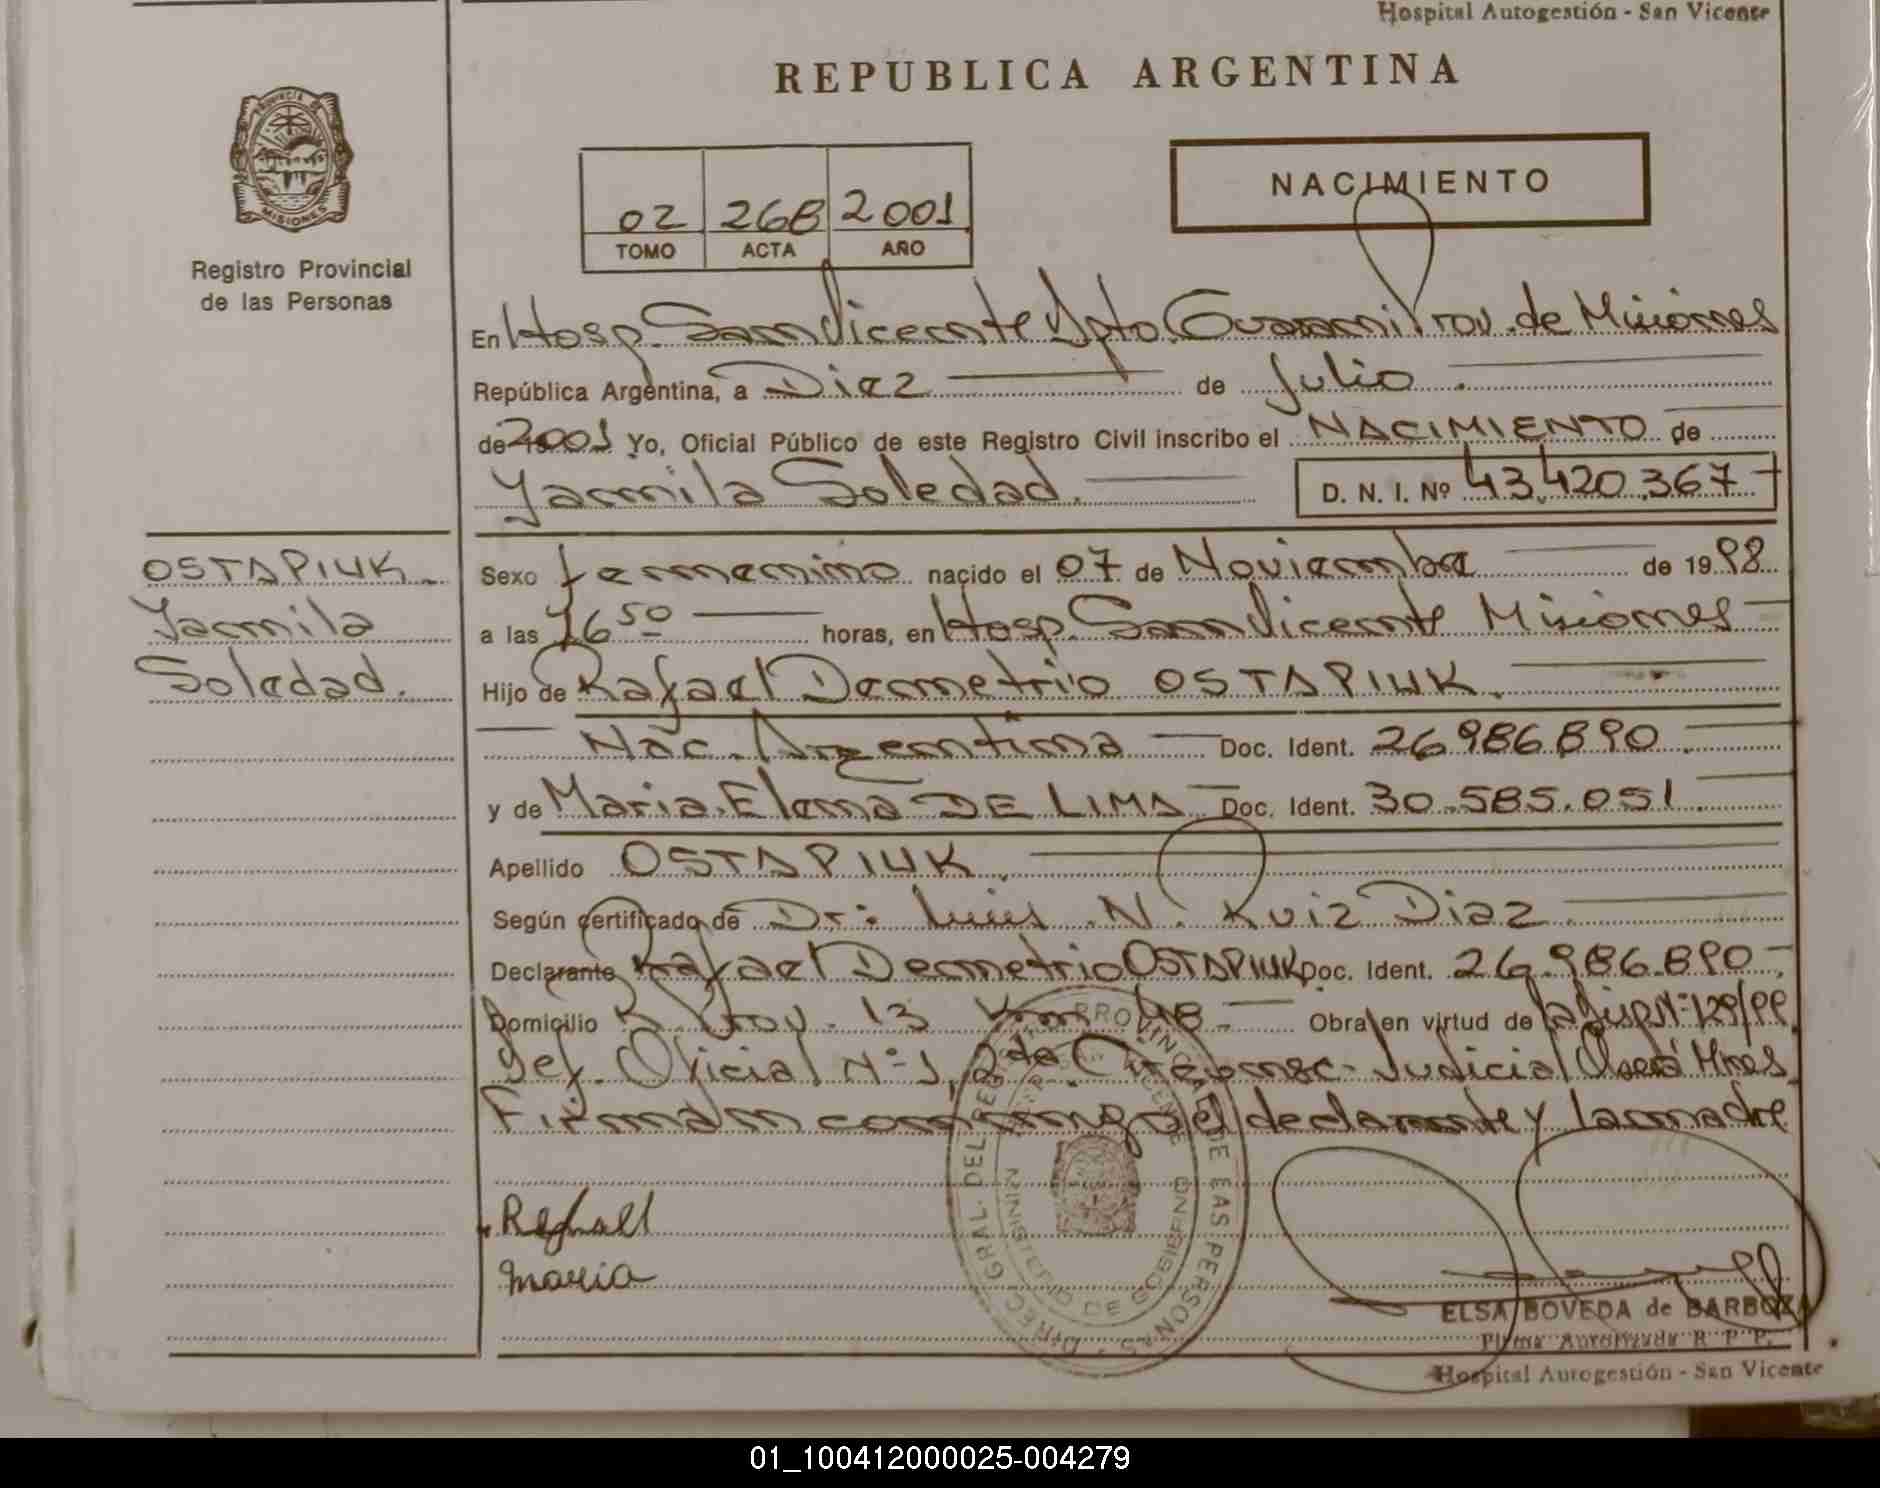 Hospital Autogestión - San Vicente
REPUBLICA ARGENTINA
PROVINCIA DE
MISIONES
Registro Provincial
de las Personas
02 268 2001
TOMO ACTA AÑO
NACIMIENTO
En Hosp. San Vicente Dpto. Guarani Prov. de Misiones
República Argentina, a Diez de Julio
de 2001 Yo, Oficial Público de este Registro Civil inscribo el NACIMIENTO de
Yamila Soledad. D. N. I. Nº 43.420.367
OSTAPIUK
Yamila
Soledad.
Sexo femenino nacido el 07 de Noviembre de 1998
a las 16 50 horas, en Hosp. San Vicente Misiones
Hijo de Rafael Demetrio OSTAPIUK.
Nac. Argentina Doc. Ident. 26.986.890
y de Maria Elena DE LIMA Doc. Ident. 30.585.051
Apellido OSTAPIUK.
Según certificado de Dr. Luis N. Ruiz Diaz
Declarante Rafael Demetrio OSTAPIUK Doc. Ident. 26.986.890
Domicilio R. Prov. 13 Km 48 Obra en virtud de la Disp Nº 129/99
Def. Oficial Nº 1, 2da Circunsc. Judicial Oberá Mnes
Firman conmigo el declarante y la madre
Rafael
maria
DIREC. GRAL. DEL REGISTRO PROVINCIAL DE LAS PERSONAS
MINISTERIO DE GOBIERNO
ELSA BOVEDA de BARBOZA
Firma Autorizada R. P. P.
Hospital Autogestión - San Vicente
01_100412000025-004279